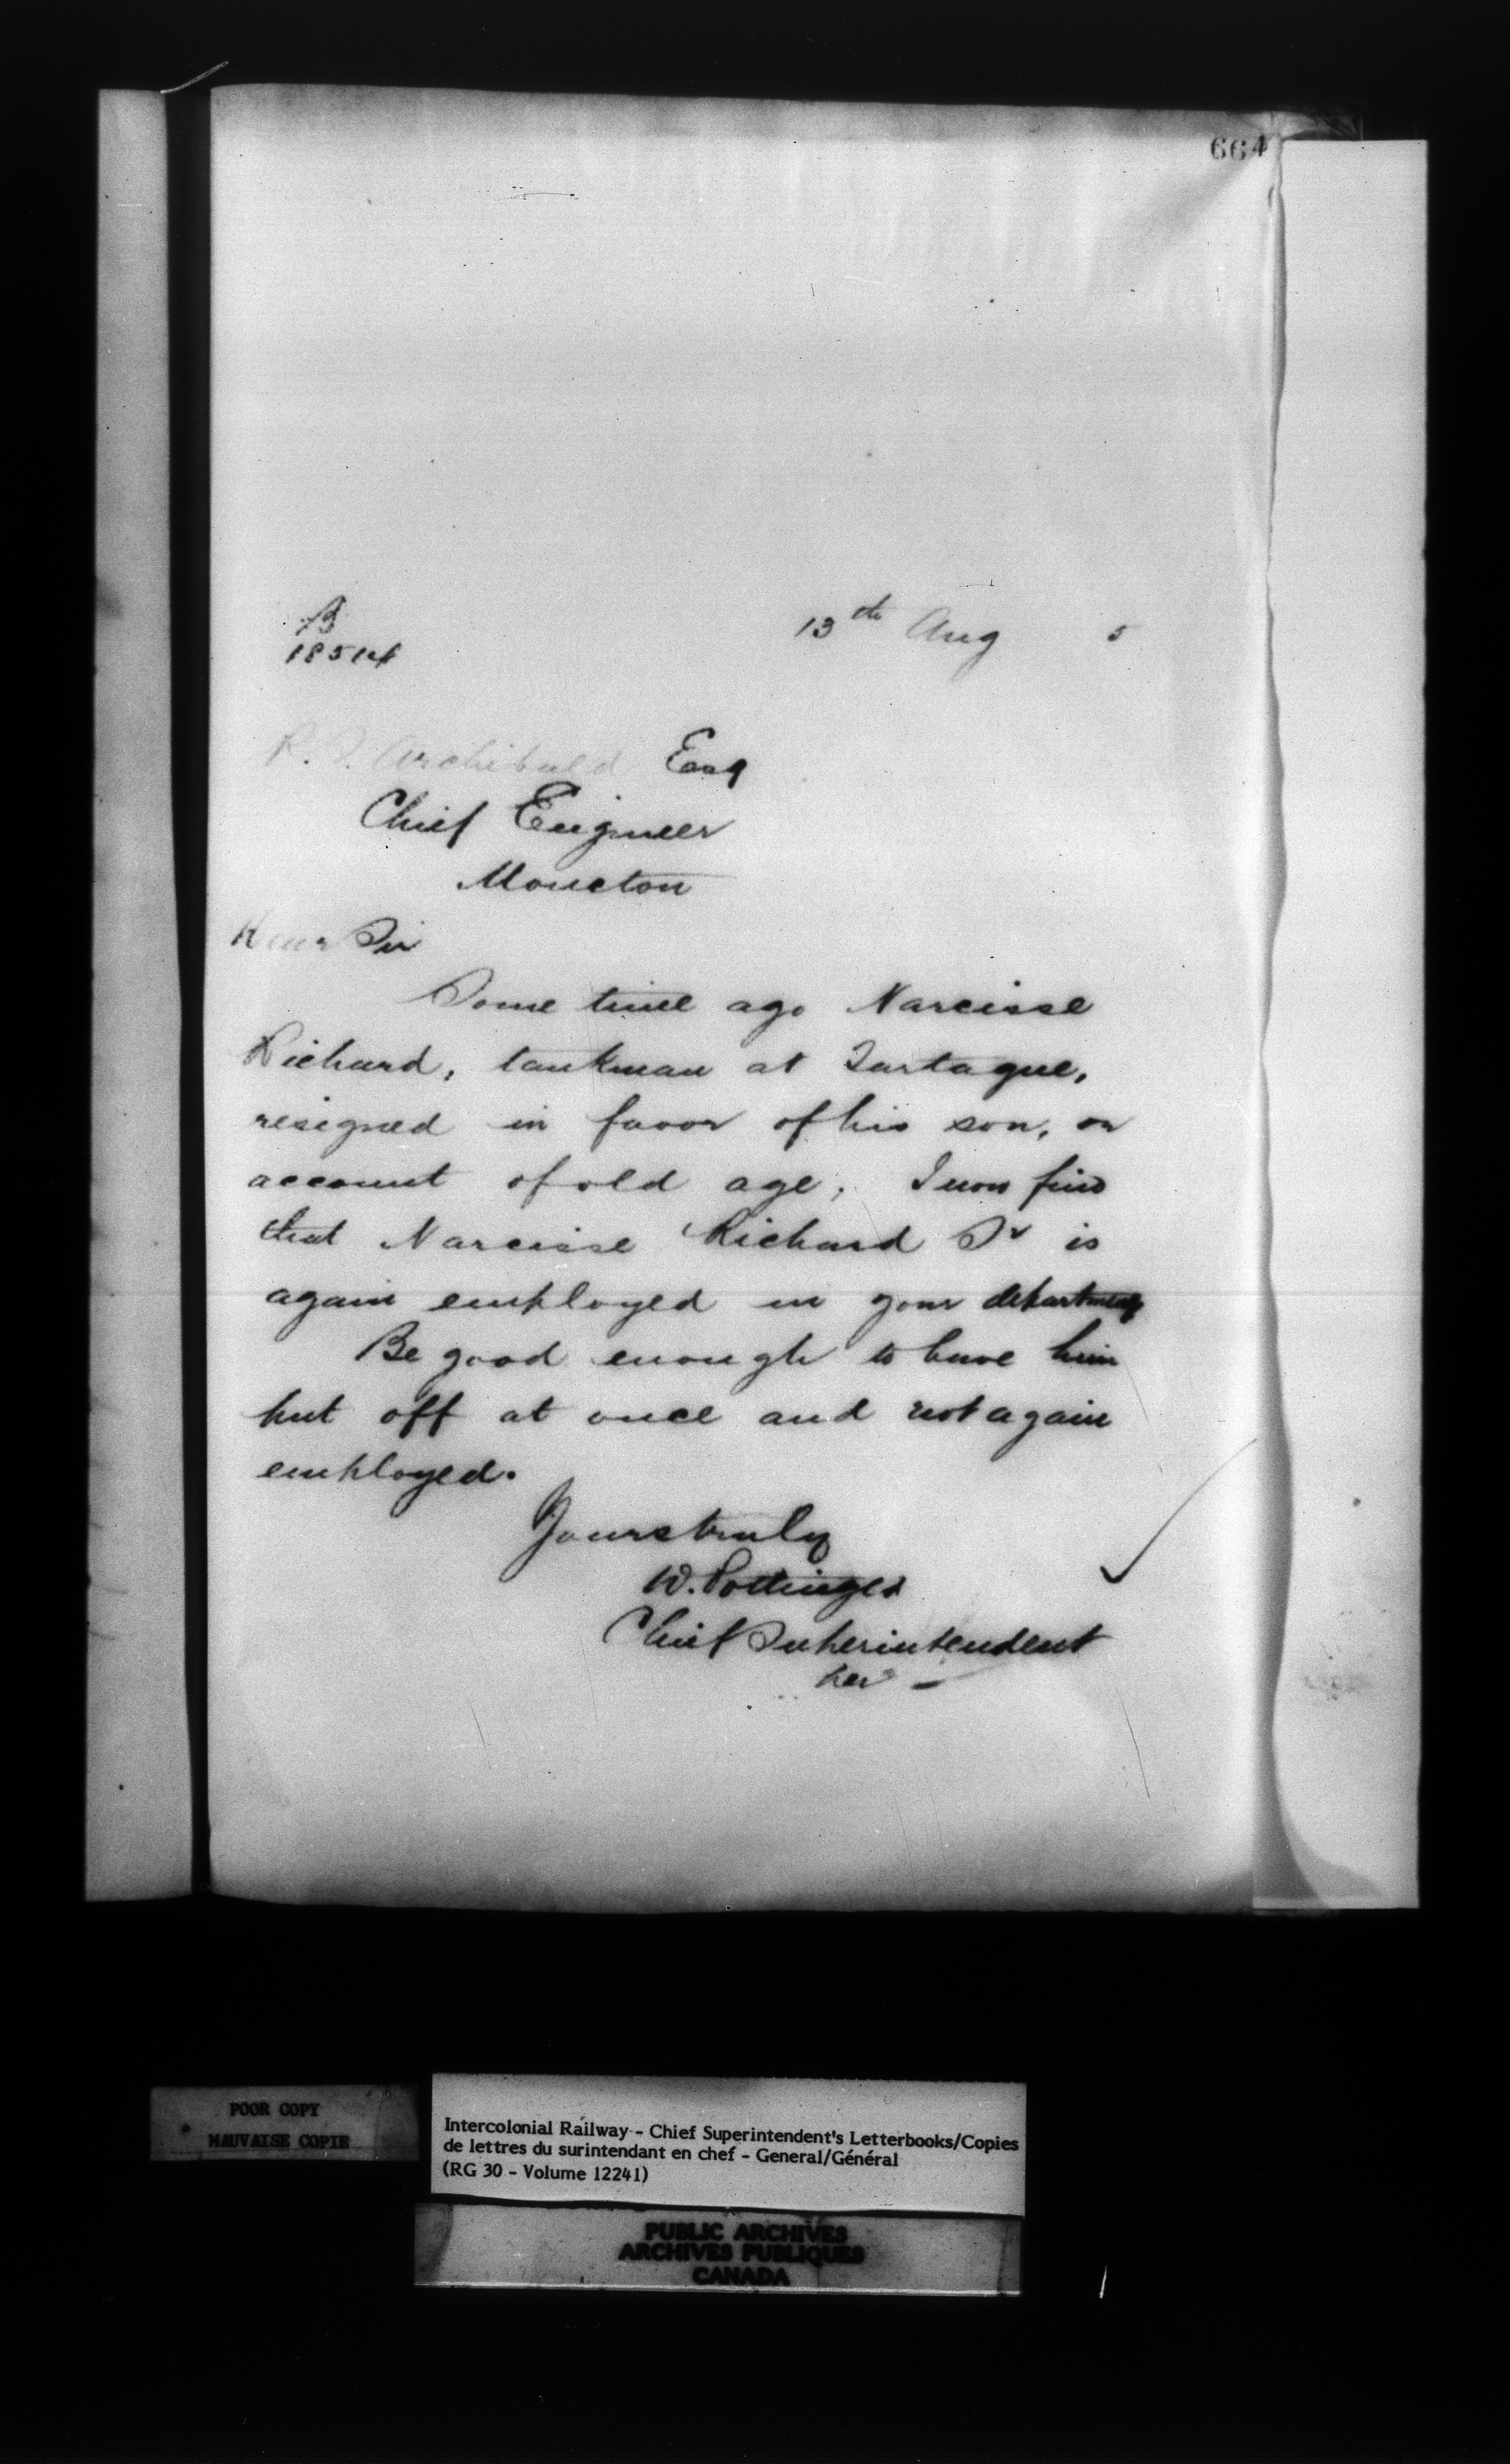 664
B
18514
13th Aug 5
R. P. Archibald Esq
Chief Engineer
Moncton
Dear Sir
Some time ago Narcisse
Richard, tankman at Tartague,
resigned in favor of his son, on
account of old age. I now find
that Narcisse Richard Sr is
again employed in your department
Be good enough to have him
put off at once and not again
employed.
Yours truly
D. Pottinger
Chief Superintendent
per
POOR COPY
MAUVAISE COPIE
Intercolonial Railway - Chief Superintendent's Letterbooks/Copies
de lettres du surintendant en chef - General/Général
(RG 30 - Volume 12241)
PUBLIC ARCHIVES
ARCHIVES PUBLIQUES
CANADA